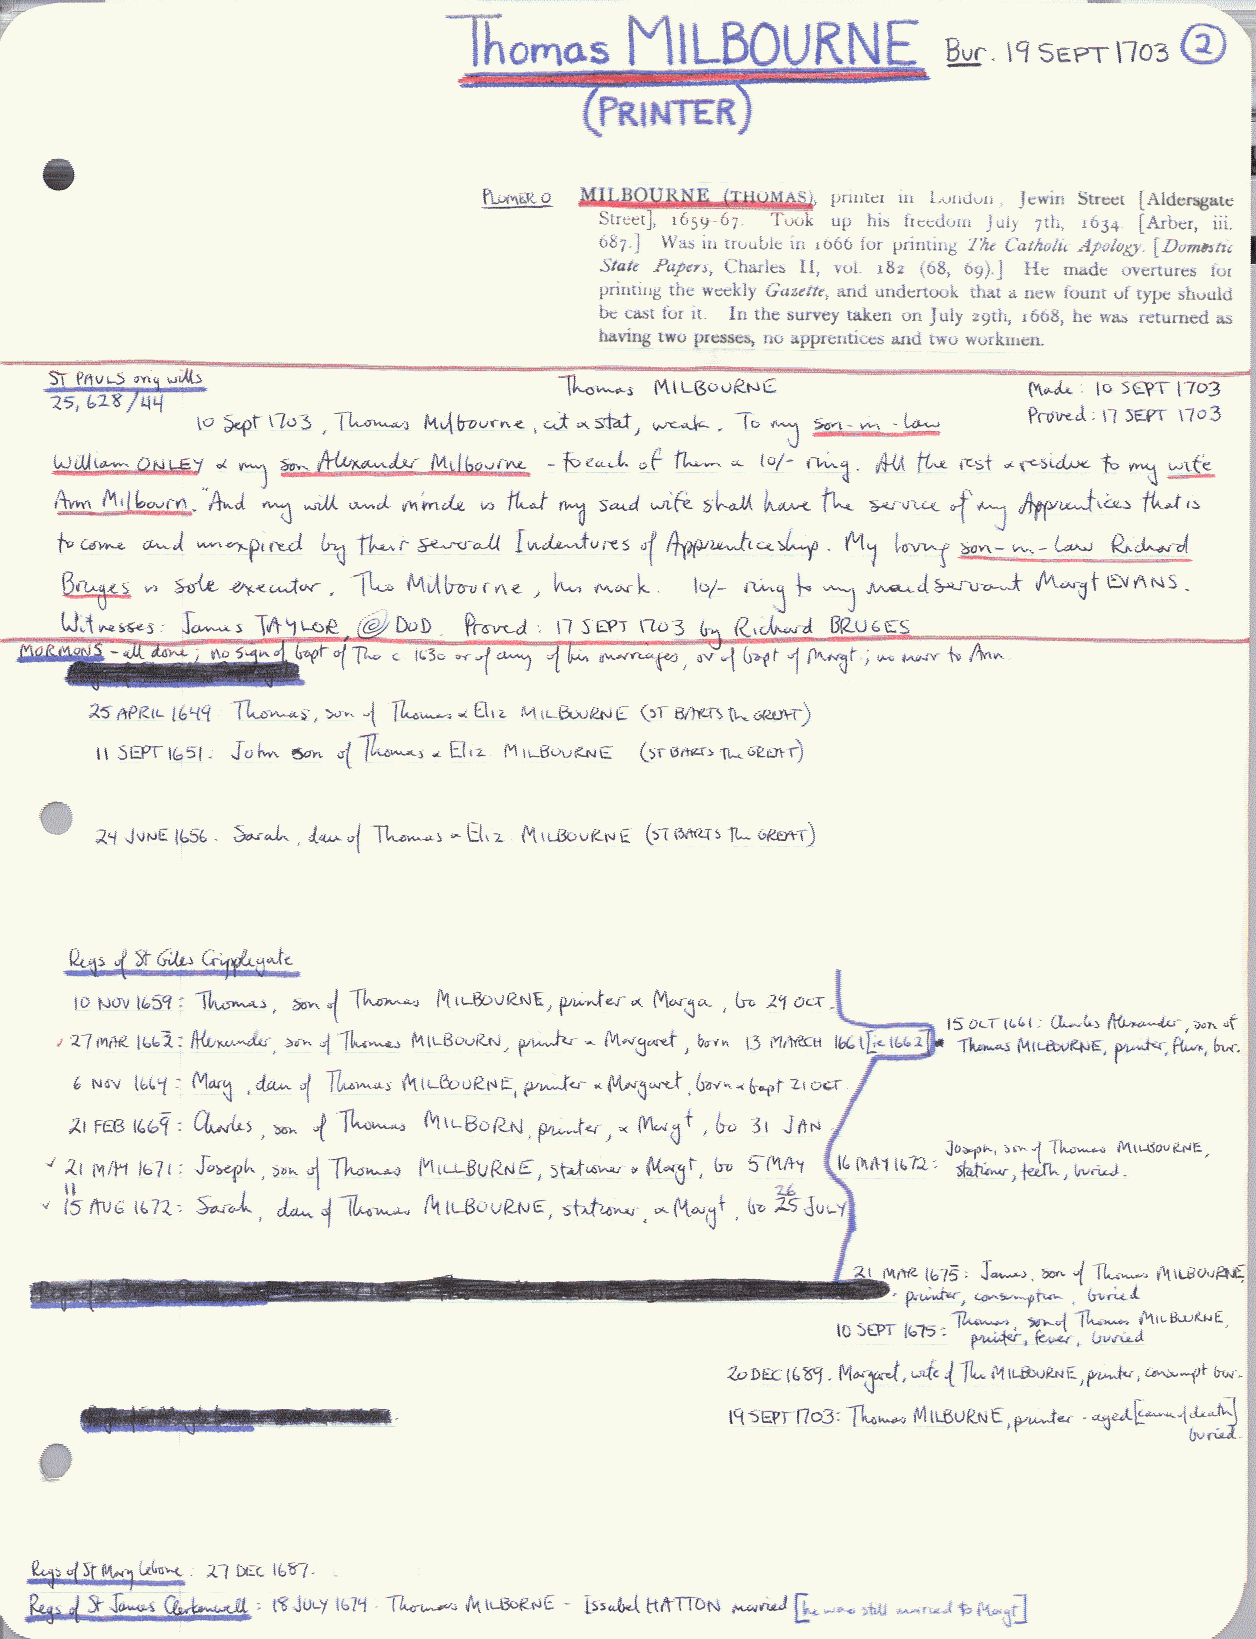 Thomas MILBOURNE Bur. 19 SEPT 1703 2
(PRINTER)
PLOMER O MILBOURNE (THOMAS), printer in London, Jewin Street [Aldersgate
Street], 1659-67. Took up his freedom July 7th, 1634. [Arber, iii.
687.] Was in trouble in 1666 for printing The Catholic Apology. [Domestic
State Papers, Charles II, vol. 182 (68, 69).] He made overtures for
printing the weekly Gazette, and undertook that a new fount of type should
be cast for it. In the survey taken on July 29th, 1668, he was returned as
having two presses, no apprentices and two workmen.
ST PAULS orig wills Thomas MILBOURNE Made: 10 SEPT 1703
25,628/44 Proved: 17 SEPT 1703
10 Sept 1703, Thomas Milbourne, cit & stat, weak. To my son-in-law
William ONLEY & my son Alexander Milbourne - to each of them a 10/- ring. All the rest & residue to my wife
Ann Milbourn. "And my will and minde is that my said wife shall have the service of my Apprentices that is
to come and unexpired by their severall Indentures of Apprenticeship. My loving son-in-law Richard
Bruges is sole executor. Tho Milbourne, his mark. 10/- ring to my maidservant Margt EVANS.
Witnesses: James TAYLOR, @ DUD. Proved: 17 SEPT 1703 by Richard BRUGES
MORMONS - all done; no sign of bapt of Tho c 1630 or of any of his marriages, or of bapt of Margt; no marr to Ann.
25 APRIL 1649: Thomas, son of Thomas & Eliz MILBOURNE (ST BARTS The GREAT)
11 SEPT 1651: John son of Thomas & Eliz MILBOURNE (ST BARTS The GREAT)
24 JUNE 1656. Sarah, dau of Thomas & Eliz MILBOURNE (ST BARTS The GREAT)
Regs of St Giles Cripplegate
10 NOV 1659: Thomas, son of Thomas MILBOURNE, printer & Marga, bo 29 OCT.
15 OCT 1661: Charles Alexander, son of
27 MAR 1662: Alexander, son of Thomas MILBOURN, printer & Margaret, born 13 MARCH 1661 [ie 1662] Thomas MILBOURNE, printer, flux, bur.
6 NOV 1664: Mary, dau of Thomas MILBOURNE, printer & Margaret, born & bapt 21 OCT.
21 FEB 1669: Charles, son of Thomas MILBORN, printer, & Margt, bo 31 JAN
21 MAY 1671: Joseph, son of Thomas MILLBURNE, stationer & Margt, bo 5 MAY 16 MAY 1672: Joseph, son of Thomas MILBOURNE,
stationer, teeth, buried.
11 26
15 AUG 1672: Sarah, dau of Thomas MILBOURNE, stationer, & Margt, bo 25 JULY
21 MAR 1675: James, son of Thomas MILBOURNE,
printer, consumption, buried
10 SEPT 1675: Thomas, son of Thomas MILBOURNE,
printer, fever, buried
20 DEC 1689. Margaret, wife of Tho MILBOURNE, printer, consumpt bur.
19 SEPT 1703: Thomas MILBURNE, printer - aged [cause of death]
buried.
Regs of St Mary Lebone: 27 DEC 1687.
Regs of St James Clerkenwell: 18 JULY 1674. Thomas MILBORNE - Issabel HATTON married [he was still married to Margt]